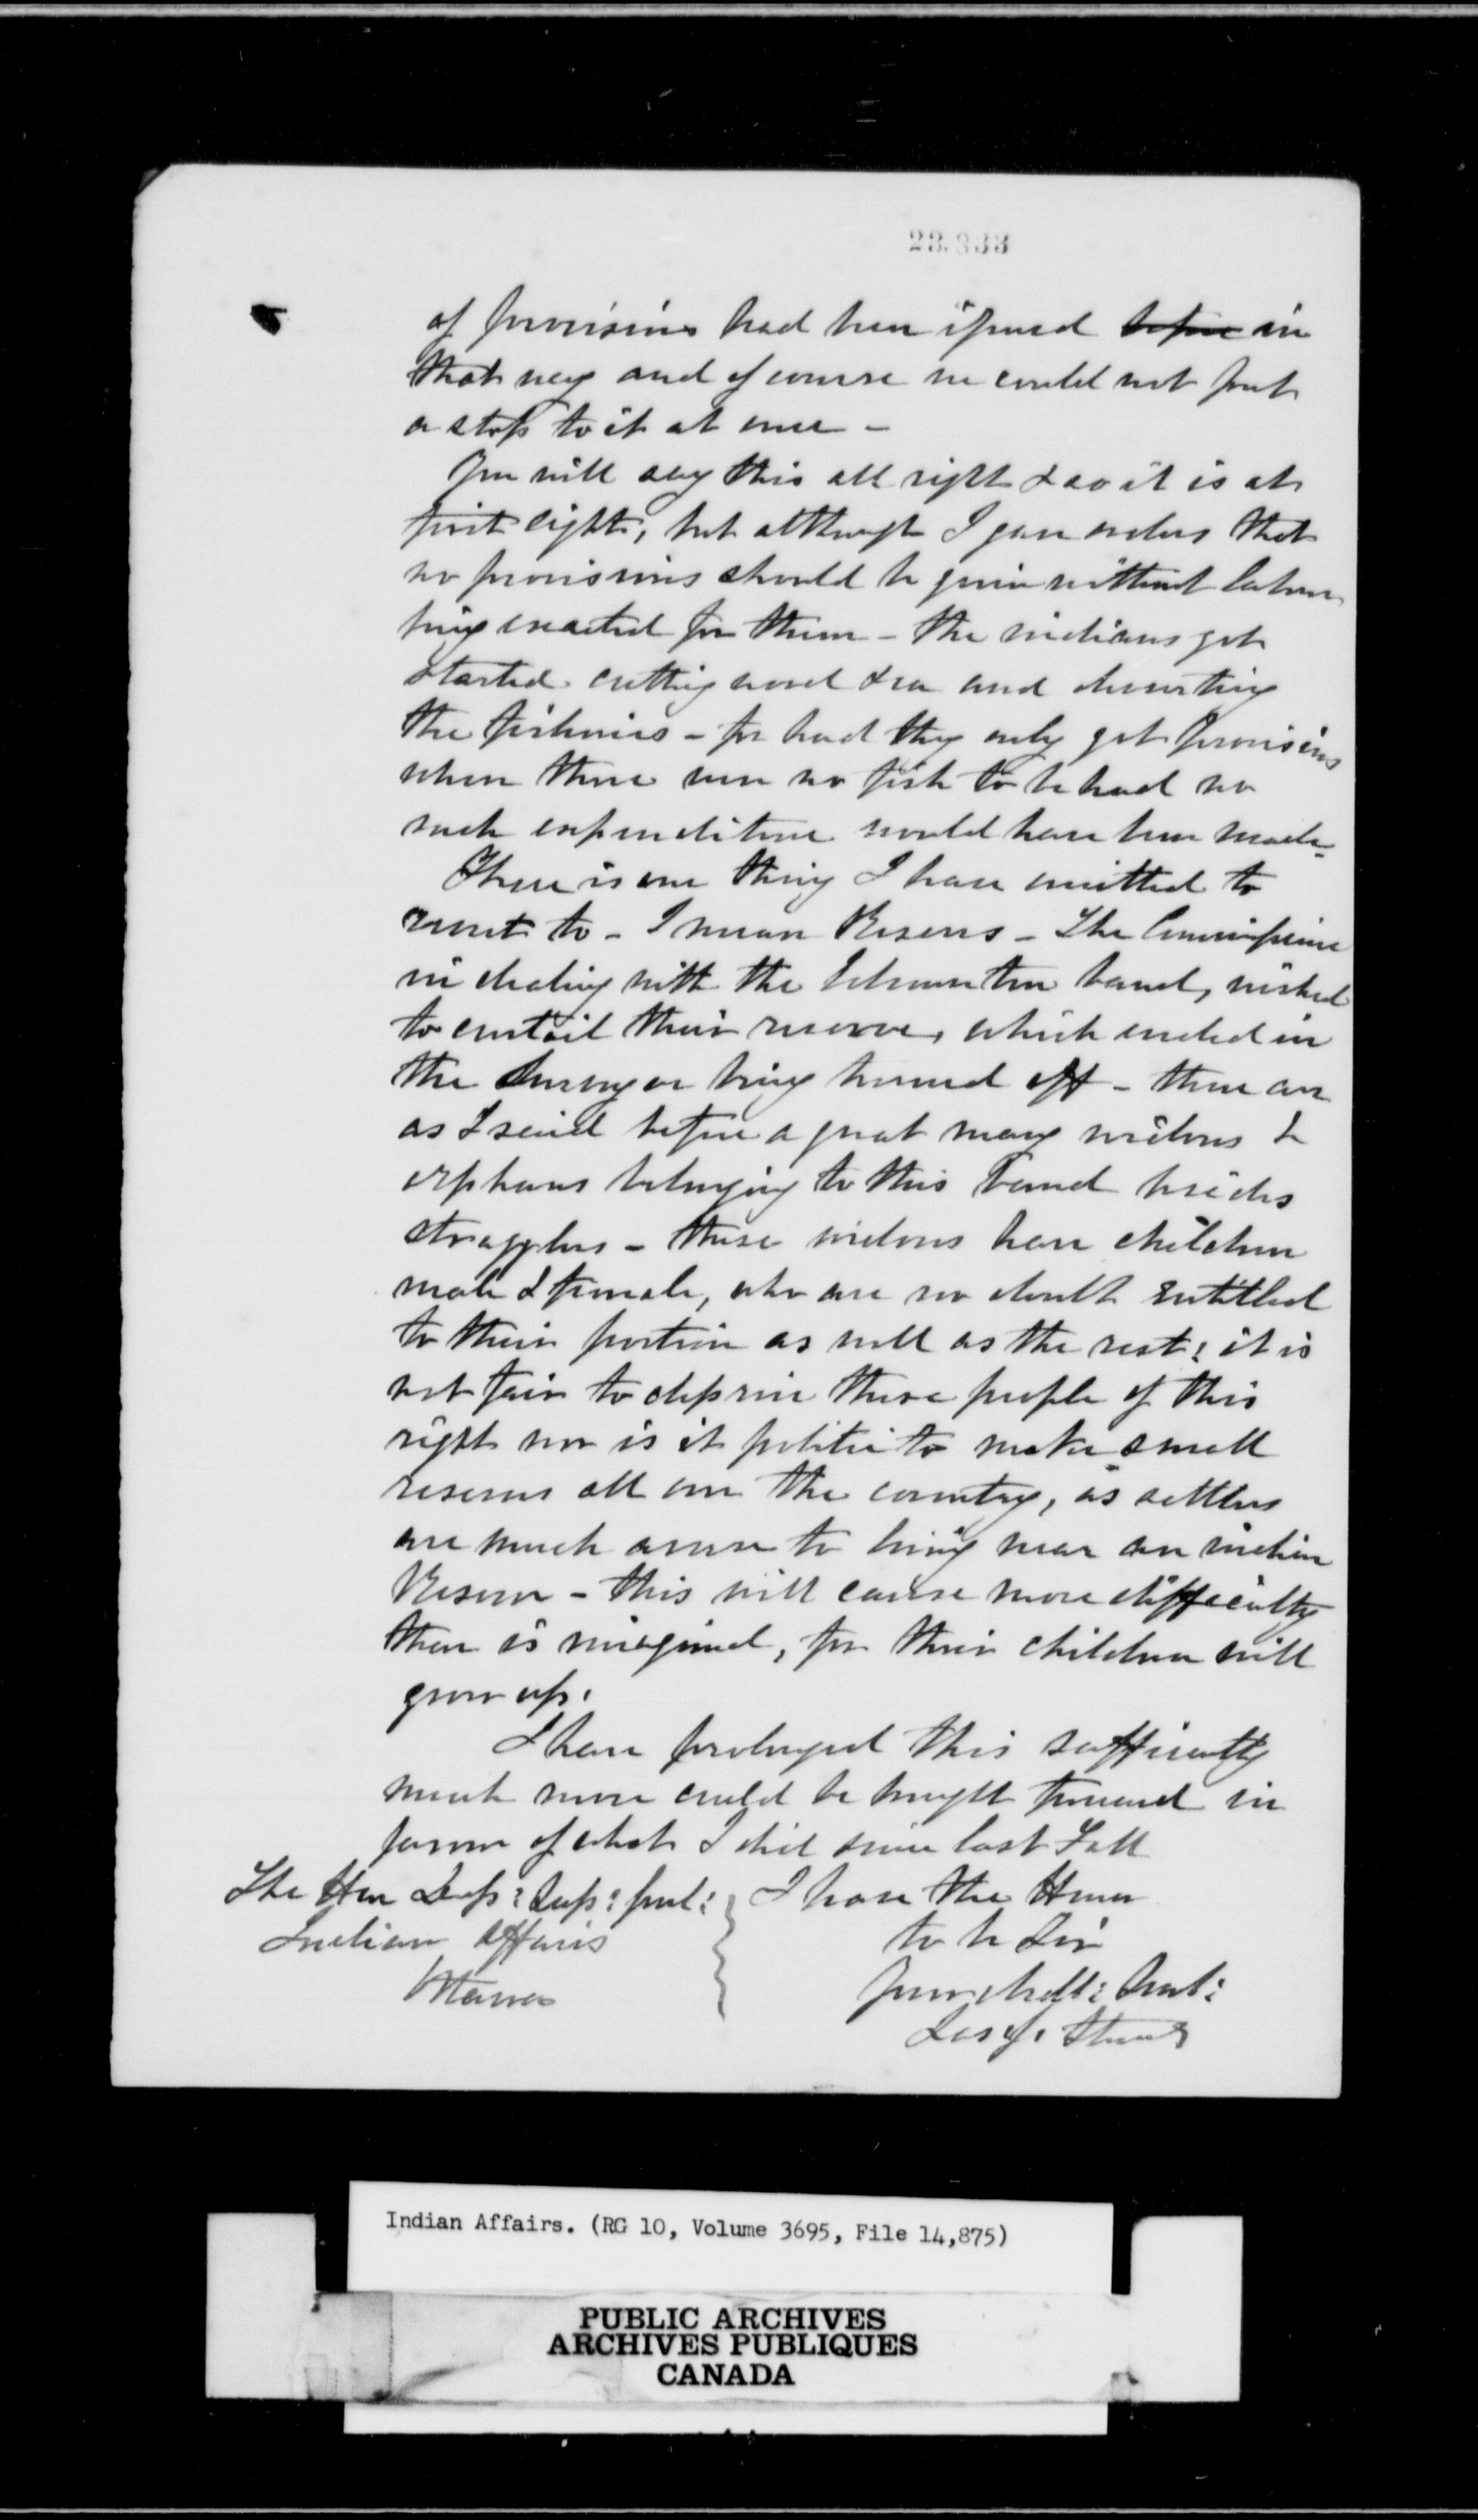 23.833
of provisions had been issued before in
that way and of course we could not put
a stop to it at once -
You will say this all right & so it is at
first sight, but although I gave orders that
no provisions should be given without labour
being exacted for them - the indians got
started cutting wood and deserting
the fisheries - for had they only got provisions
when there were no fish to be had no
such expenditure would have been made -
There is one thing I have omitted to
revert to - I mean Reserves - The Commissioner
in dealing with the Edmonton band, wished
to curtail their reserve, which ended in
the Surveyor being turned off - there are
as I said before a great many widows &
orphans belonging to this band besides
stragglers - these widows have children
male & female, who are no doubt entitled
to their portion as well as the rest; it is
not fair to deprive these people of this
right nor is it politic to make small
reserves all over the country, as settlers
are much averse to living near an indian
Reserve - this will cause more difficulty
than is imagined, for their children will
grow up.
I have prolonged this sufficiently
much more could be brought forward in
favour of what I did since last Fall
The Hon Dep: Sup: Genl: I have the Honor
Indian Affairs to be Sir
Ottawa Your obedt: Servt:
Indian Affairs. (RG 10, Volume 3695, File 14,875)
PUBLIC ARCHIVES
ARCHIVES PUBLIQUES
CANADA